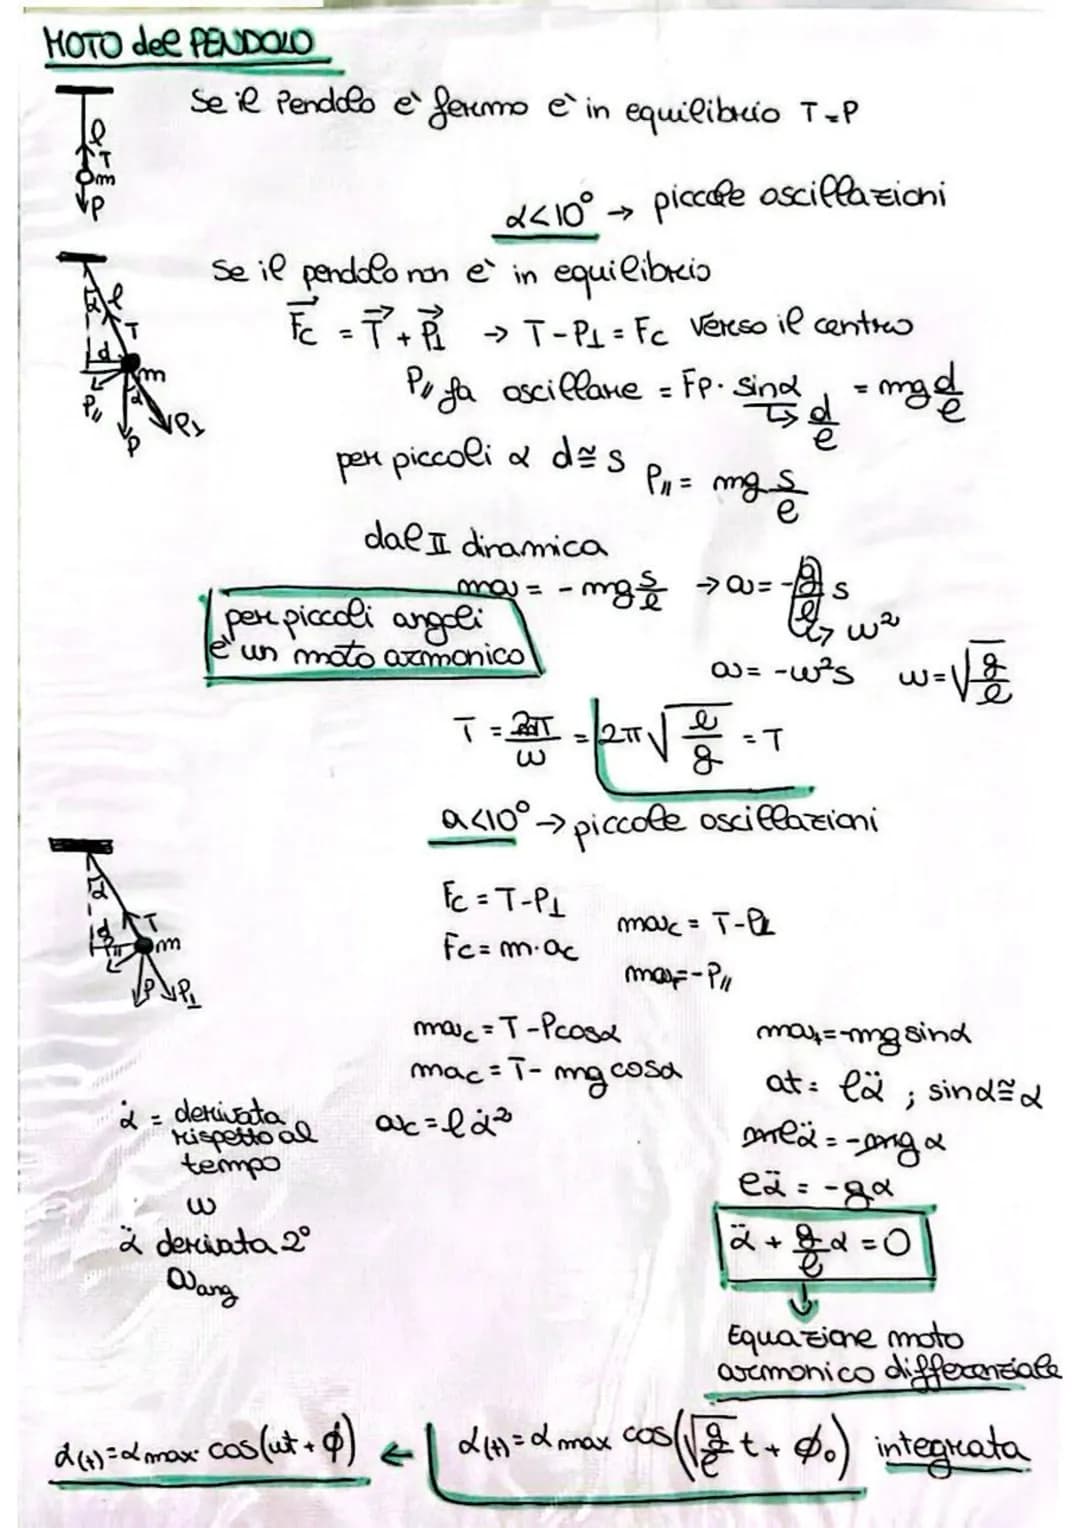 MOTO del PENDOLO
Se il Pendolo è fermo è in equilibrio T=P
l
T
m
P
α<10° → piccole oscillazioni
Se il pendolo non è in equilibrio
Fc = T + P⊥ → T-P⊥ = Fc verso il centro
α l
T
d
m
P∥ α
P P⊥
P∥ fa oscillare = Fp · sinα = mg d/l
↳ d/l
per piccoli α d≅s P∥ = mg s/l
dal II dinamica
ma = - mg s/l → a = - g/l s
↳ ω²
per piccoli angoli
è un moto armonico
a = -ω²s ω=√g/l
T = 2π/ω = 2π√l/g = T
α<10° → piccole oscillazioni
α
T
d
m
P∥
P P⊥
Fc = T-P⊥
mac = T-P⊥
Fc = m·ac
maT=-P∥
mac = T-Pcosα
mat=-mg sinα
mac = T- mg cosα
at = lα̈ ; sinα≅α
α̇ = derivata
rispetto al
tempo
ω
ac = lα̇²
mlα̈ = -mg α
lα̈ = -gα
α̈ derivata 2°
aang
α̈ + g/l α = 0
Equazione moto
armonico differenziale
α(t)=αmax· cos(ωt+ϕ) ← α(t)=αmax cos(√g/l t+ ϕ₀) integrata